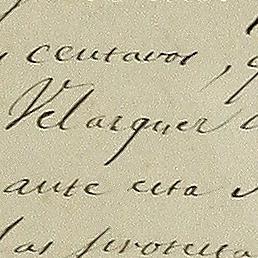 centavos,
Velasquez
ante esta
las protesta